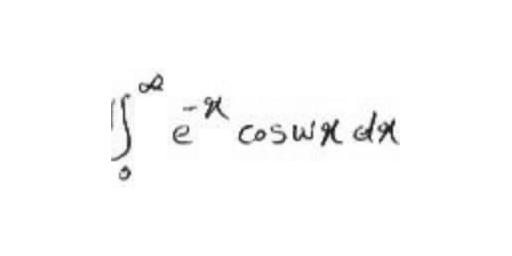 ∫₀^∞ e^{-x} cos wx dx